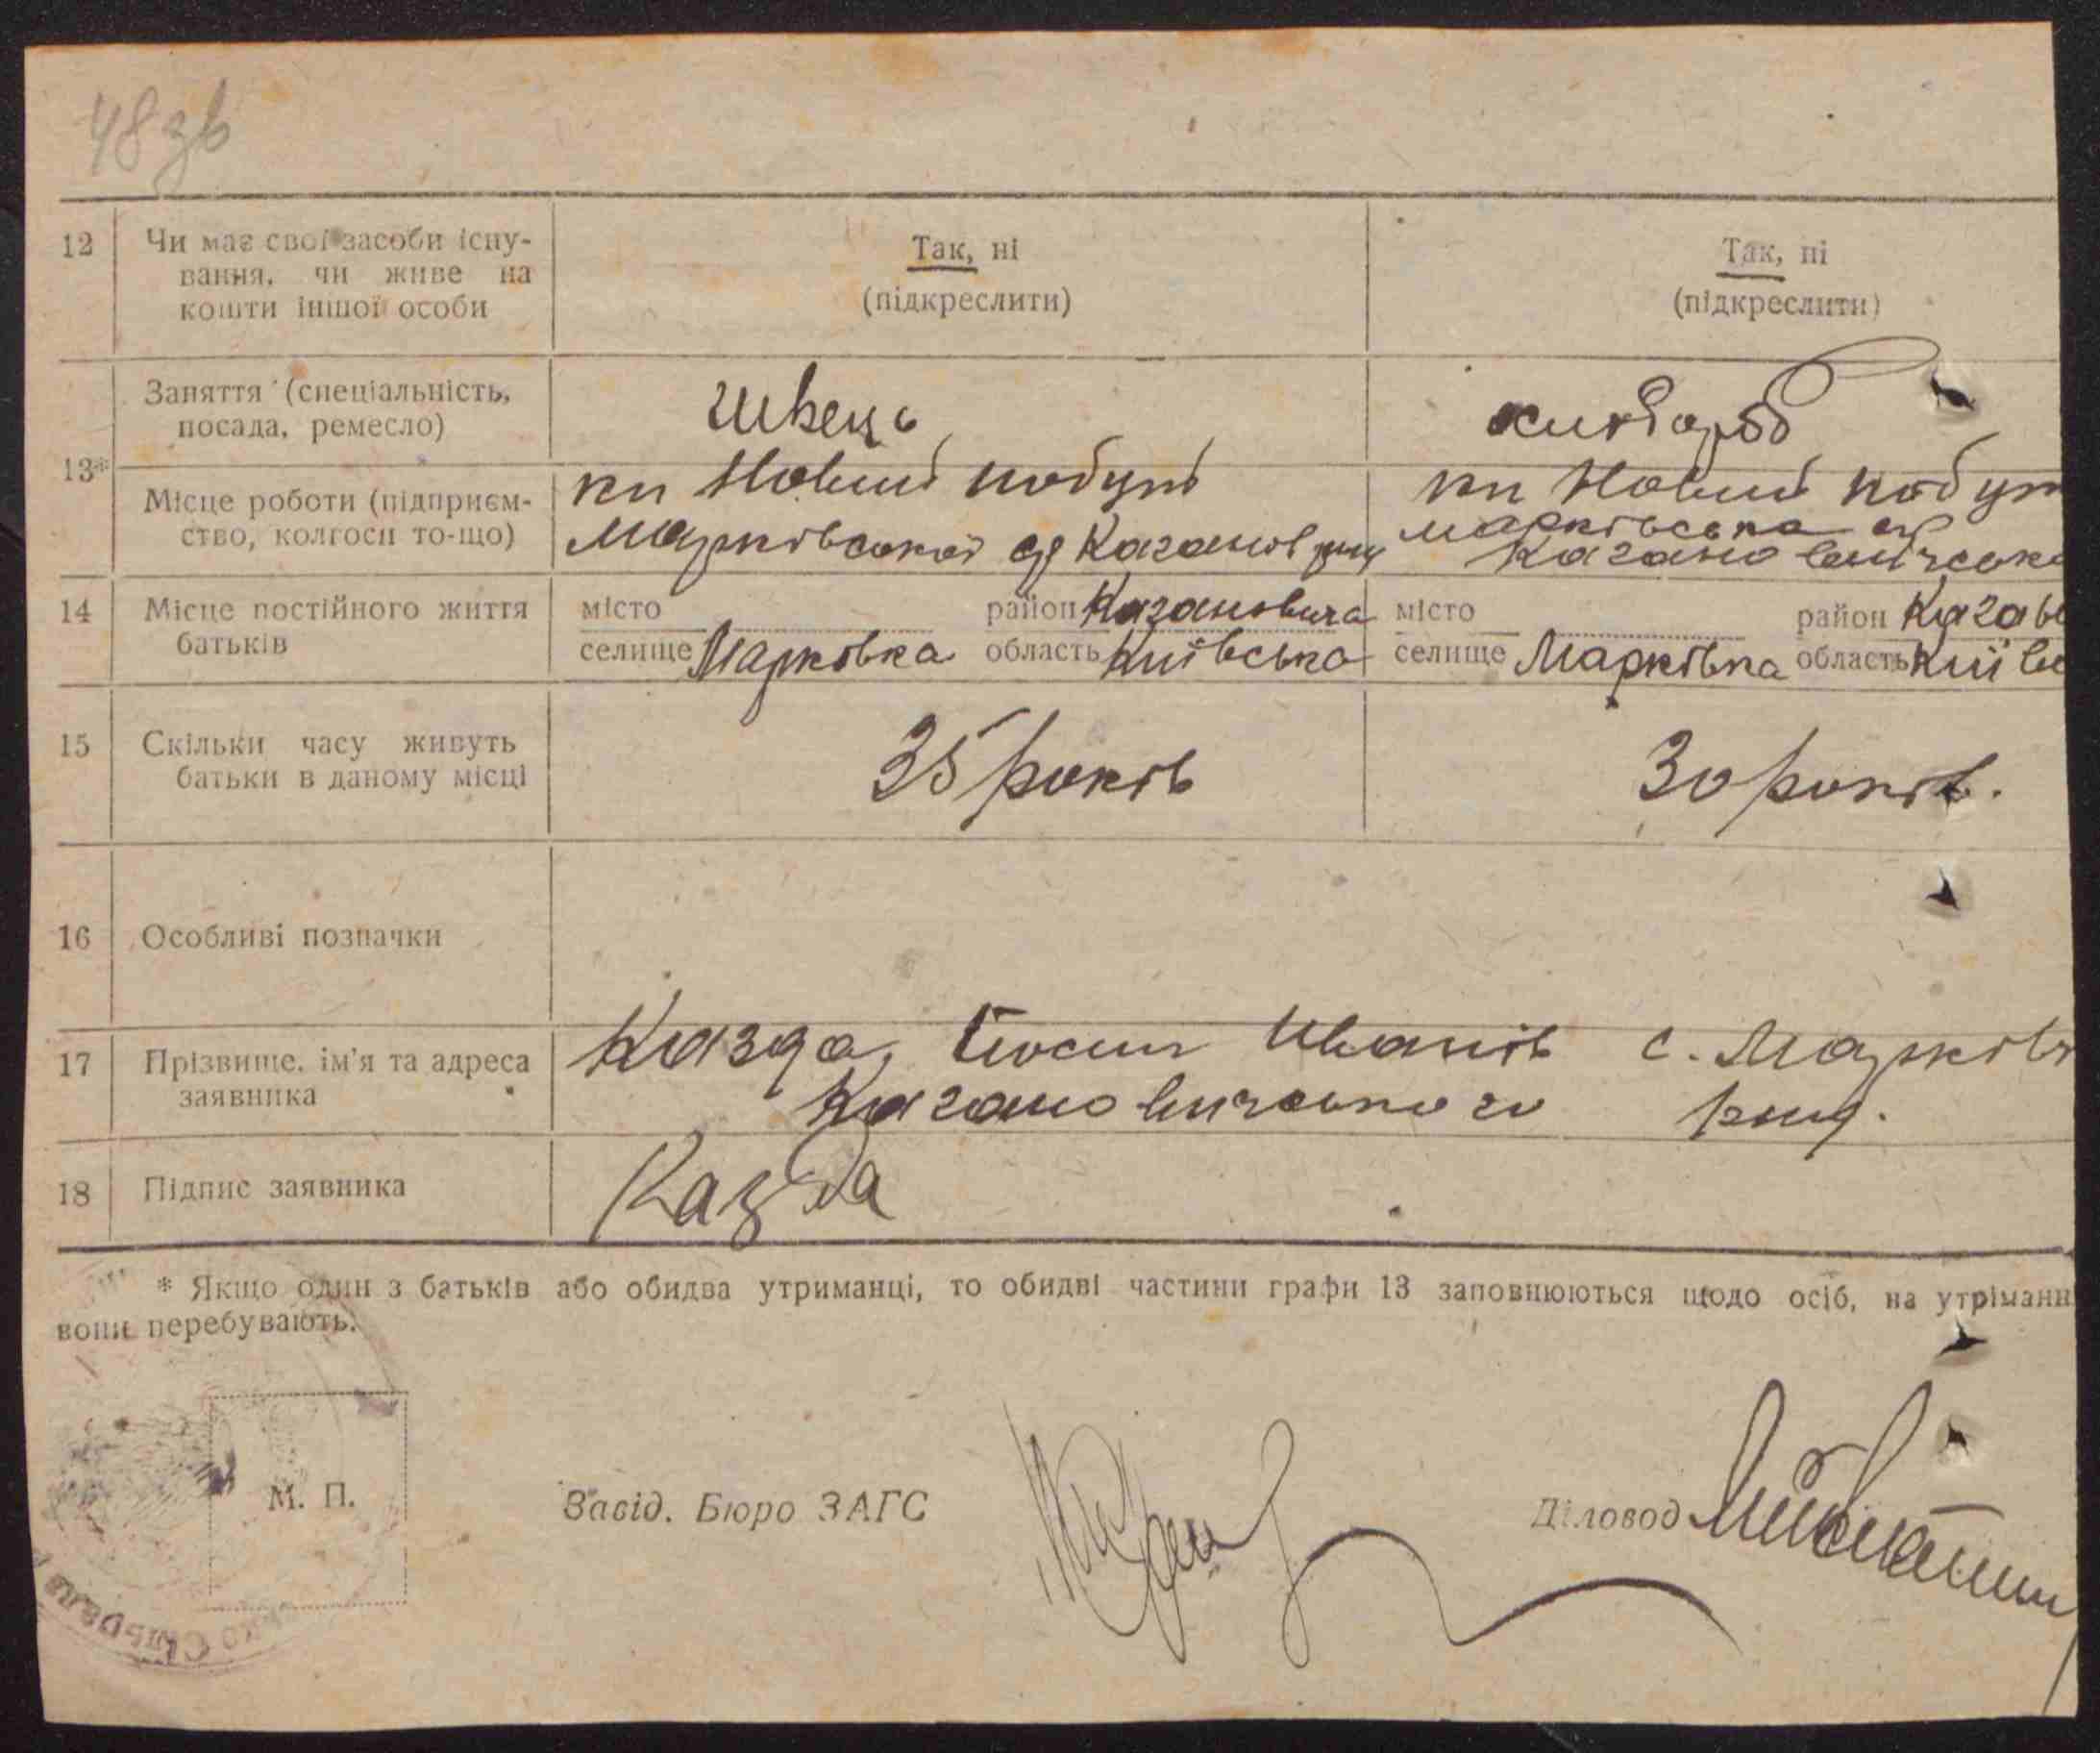 48 зв
12 Чи має свої засоби існу-
вання, чи живе на
кошти іншої особи
Так, ні
(підкреслити)
Так, ні
(підкреслити)
13*
Заняття (спеціальність,
посада, ремесло)
Швець
Місце роботи (підприєм-
ство, колгосп то-що)
кп Новий побут
Марківської ср Каганов
кп Новий побут
Марківська ср
Кагановичськ
14 Місце постійного життя
батьків
місто район Кагановича
селище Марківка область Київська
місто район Кагов
селище Марківка область Київс
15 Скільки часу живуть
батьки в даному місці
35 років
30 років.
16 Особливі позначки
17 Прізвище, ім'я та адреса
заявника
Казда, Йосип Иванів с. Марків
Кагановичського
18 Підпис заявника
Казда
* Якщо один з батьків або обидва утриманці, то обидві частини графи 13 заповнюються щодо осіб, на утріманн
вони перебувають.
М. П.
Завід. Бюро ЗАГС
Діловод